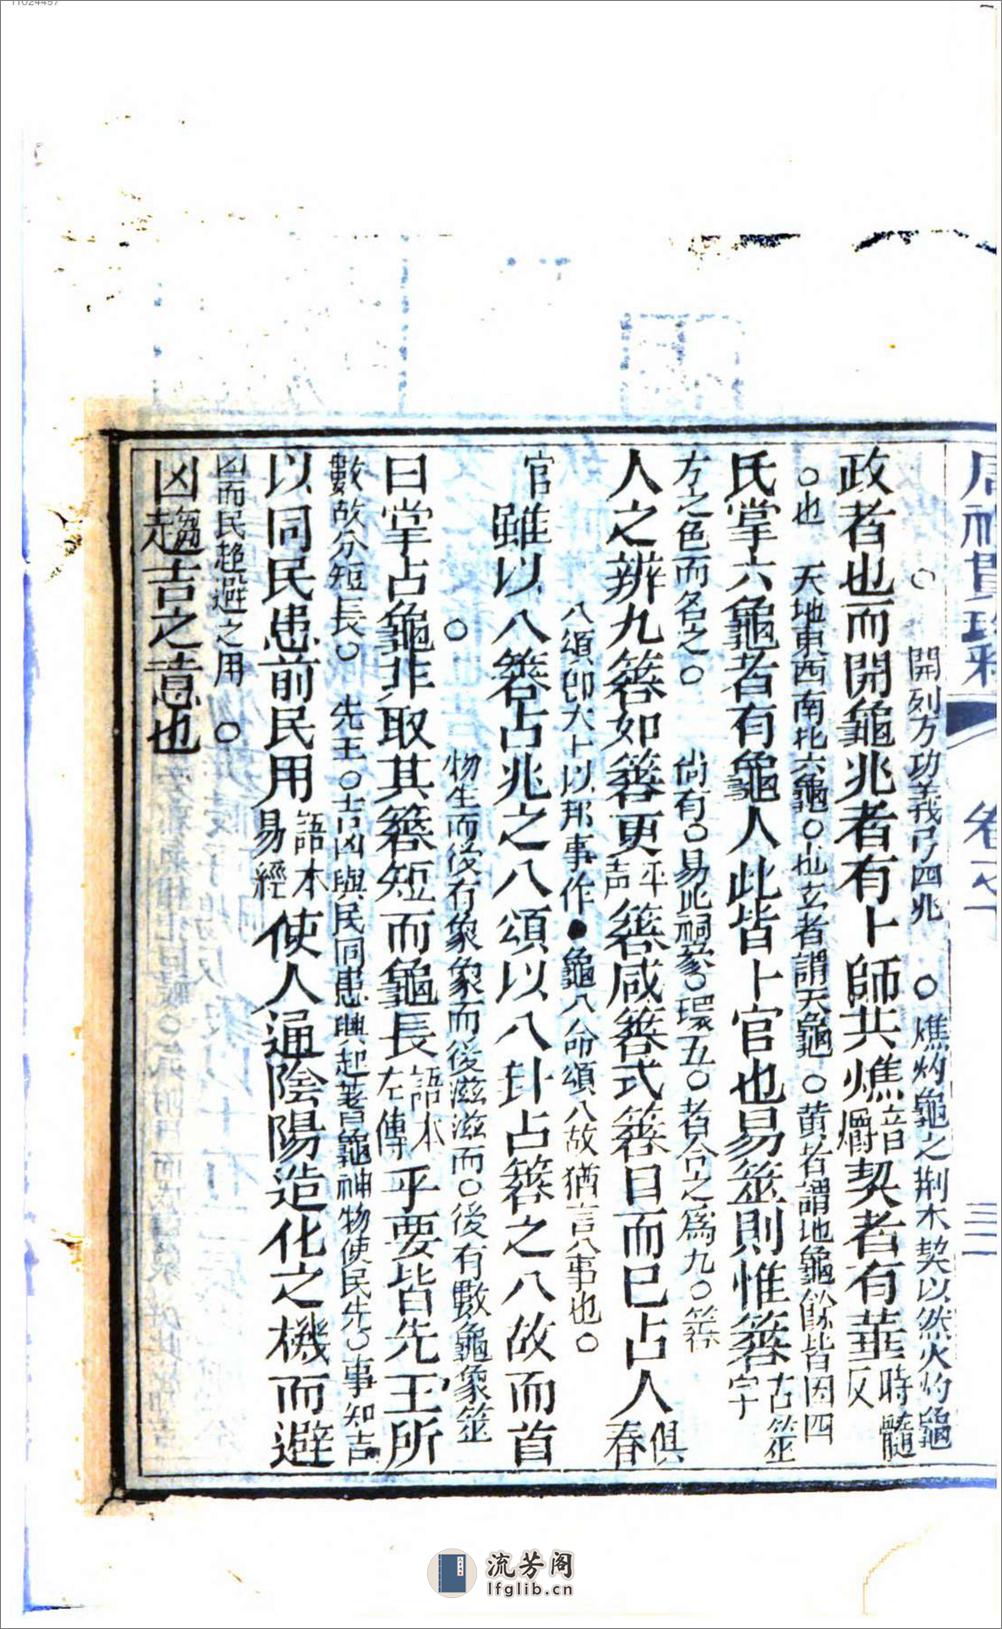 周禮貫珠 卷之下 三二
○ 開列方功義弓四兆 ○燋灼龜之荆木契以然火灼龜
政者也而開龜兆者有卜師共燋音爝契者有菙時髓反
○也 天地東西南北六龜○也玄者謂天龜○黄者謂地龜餘皆因四
氏掌六龜者有龜人此皆卜官也易筮則惟簭古筮字
方之色而名之○ 尚有○易此祠參○環五○者合之爲九○簭
人之辨九簭如簭更平声簭咸簭式簭目而已占人春
八頌卽大卜以邦事作●龜八命頌八故猶言八事也○
官雖以八簭占兆之八頌以八卦占簭之八故而首
○ 物生而後有象象而後滋滋而○後有數龜象筮
曰掌占龜非取其簭短而龜長語本左傳乎要皆先王所
數故分短長○ 先王○吉凶與民同患興起蓍龜神物使民先○事知吉
以同民患前民用語本易經使人通陰陽造化之機而避
凶而民趋避之用 ○
凶趨吉之意也
流芳阁
lfglib.cn